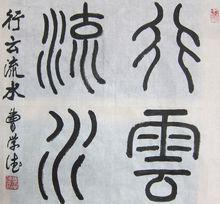 行雲
流水
行云流水
曹荣德